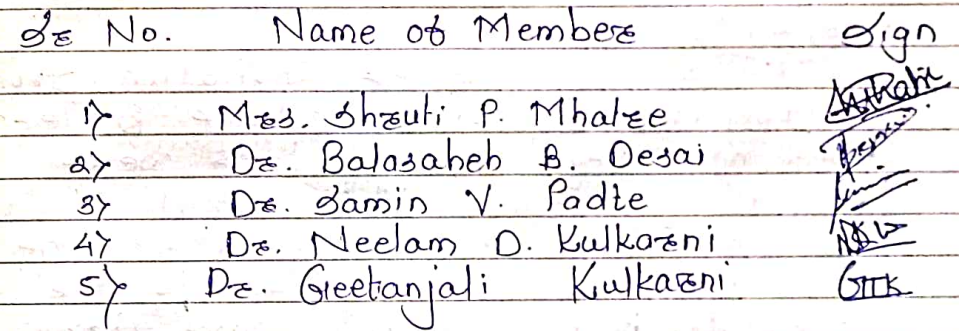 Sr No. Name of Member Sign
1) Mrs. Shruti P. Mhatre
2) Dr. Balasaheb B. Desai
3) Dr. Samin V. Padte
4) Dr. Neelam D. Kulkarni
5) Dr. Geetanjali Kulkarni GTK